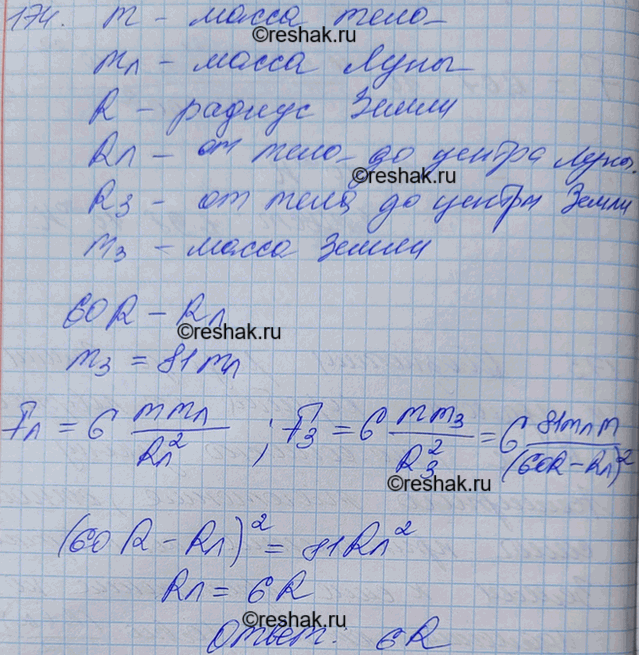 174. m - масса тело
©reshak.ru
mл - масса Луны
R - радиус Земли
©reshak.ru
Rл - от тело до центра Луны.
R3 - от тела до центры Земли
m3 - масса Земли
60R - Rл
©reshak.ru
m3 = 81mл
Fл = G mmл/Rл² ; F3 = G mm3/R3² = G 81mлm/(60R-Rл)²
©reshak.ru
(60R - Rл)² = 81Rл²
Rл = 6R
©reshak.ru
Ответ: 6R